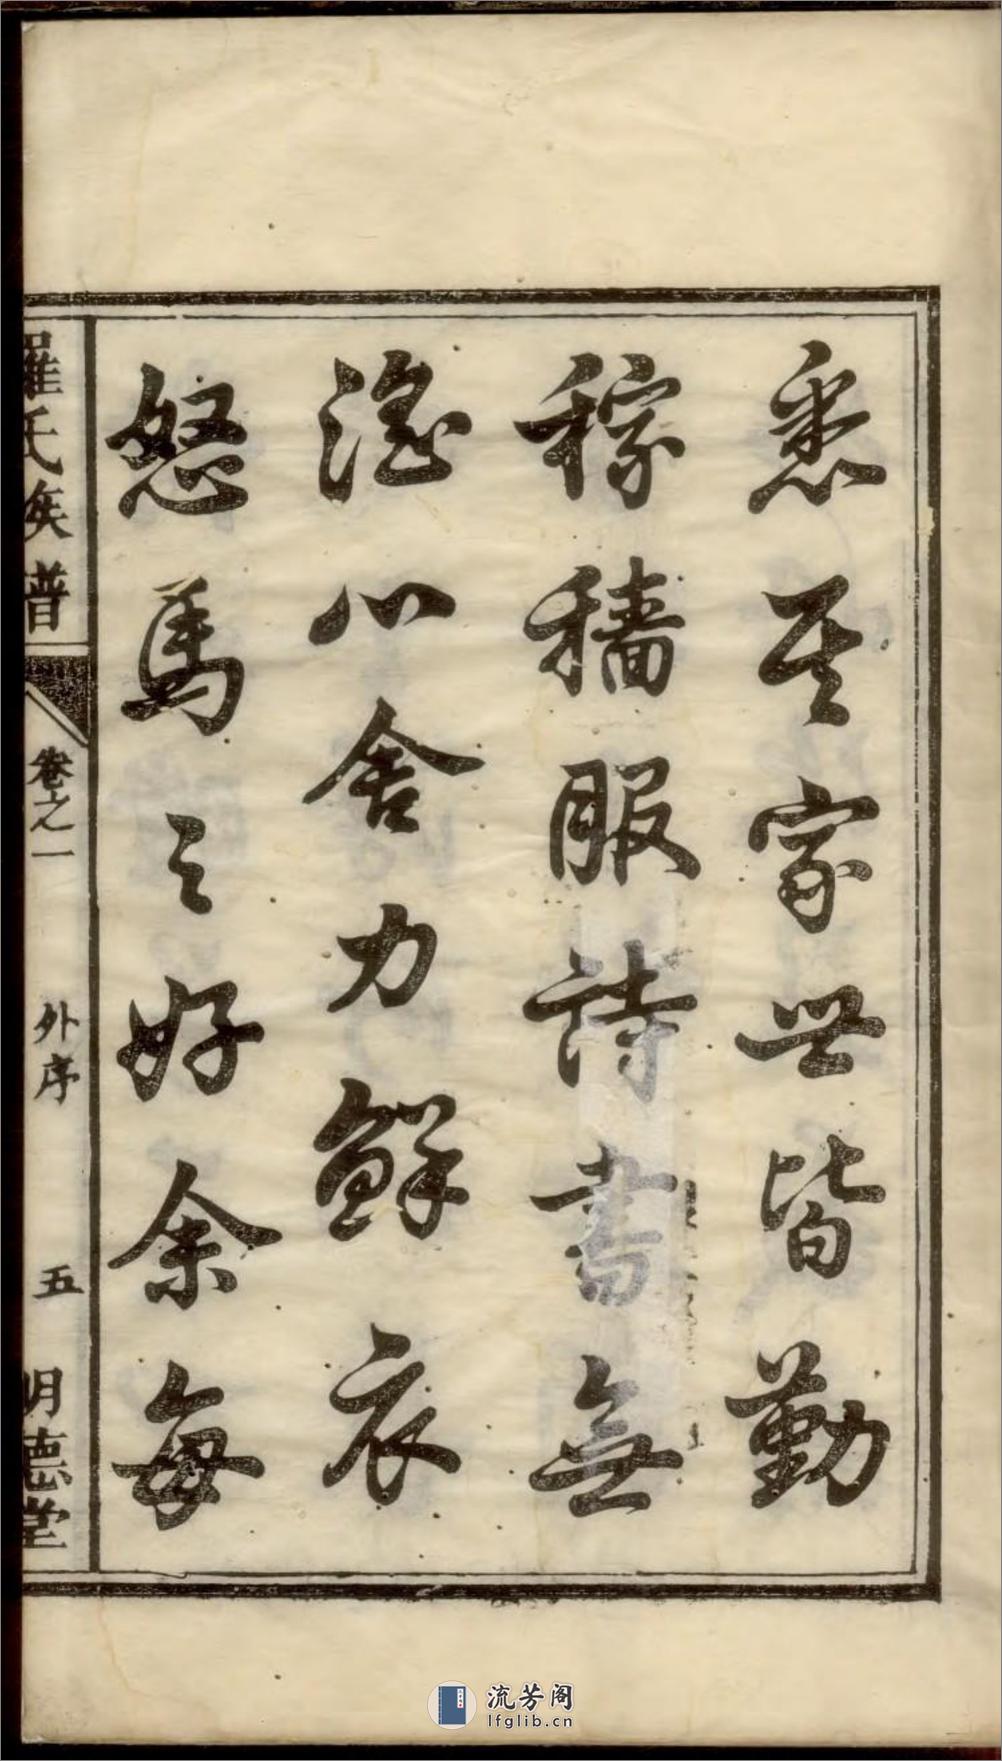 悉其家世皆勤
稼穡服詩書無
淫心舍力鮮衣
怒馬之好余每
羅氏族譜
卷之一
外序
五
明德堂
流芳阁
lfglib.cn